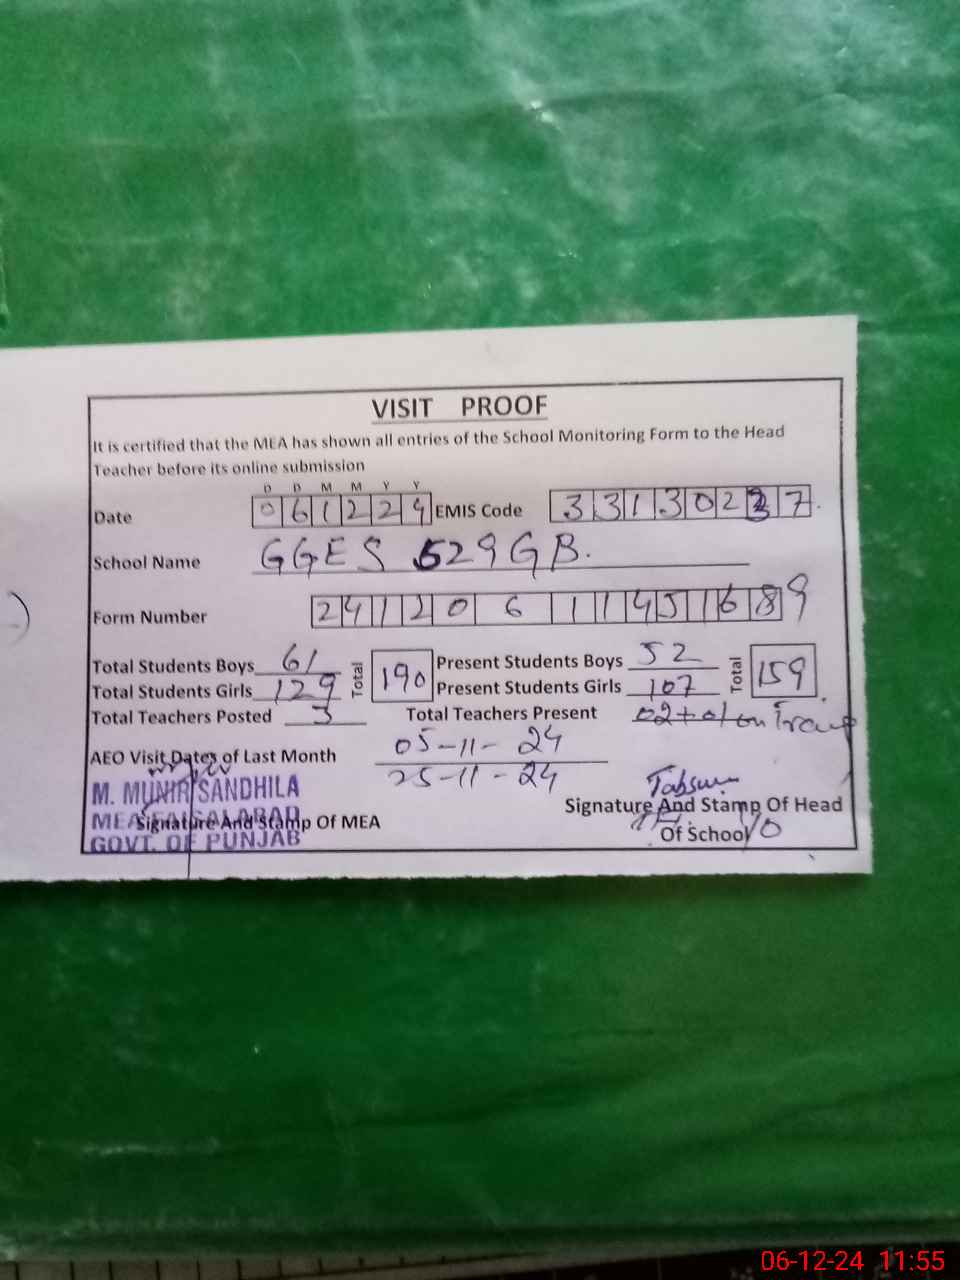 VISIT PROOF
It is certified that the MEA has shown all entries of the School Monitoring Form to the Head
Teacher before its online submission
D D M M Y Y
Date 061224 EMIS Code 33130237
School Name GGES 529 GB.
Form Number 24120611451689
Total Students Boys 61 Total 190 Present Students Boys 52 Total 159
Total Students Girls 129 Present Students Girls 107
Total Teachers Posted 3 Total Teachers Present 02+01 on
AEO Visit Dates of Last Month 05-11-24
25-11-24
M. MUNIR SANDHILA
MEA FAISALABAD
GOVT. OF PUNJAB
Signature And Stamp Of MEA
Signature And Stamp Of Head
Of School
06-12-24 11:55